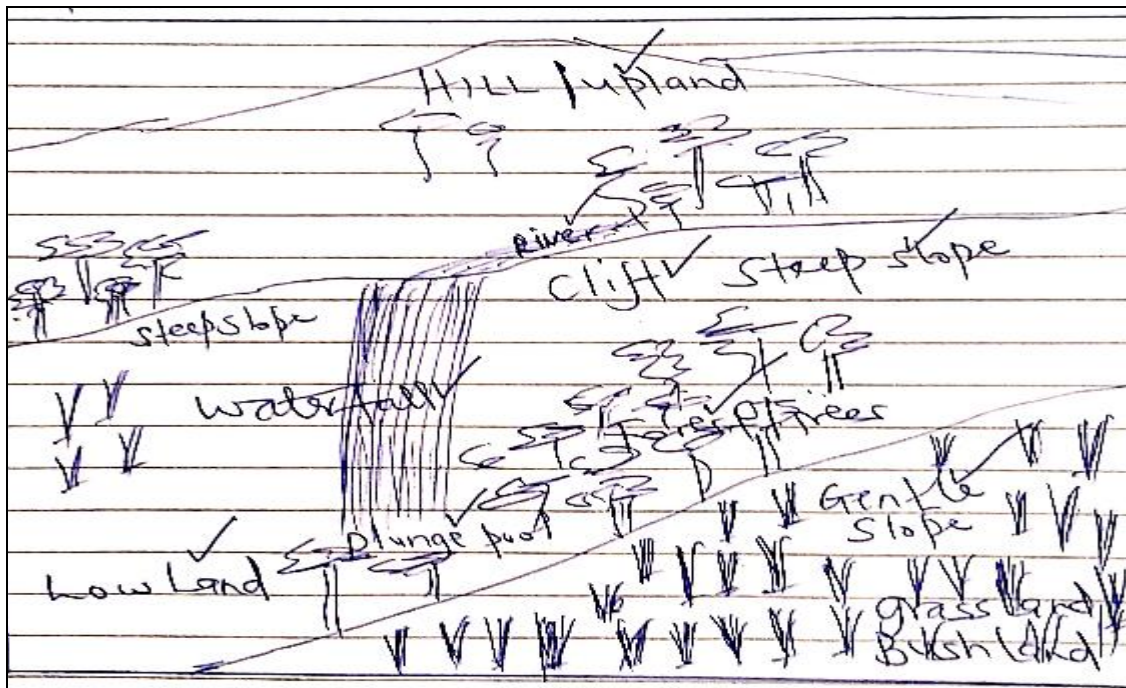 HILL / upland
River
Clift
Steep slope
steep slope
Waterfall
Forest trees
Gentle
Slope
Plunge pool
Low Land
Grass land
Bush land